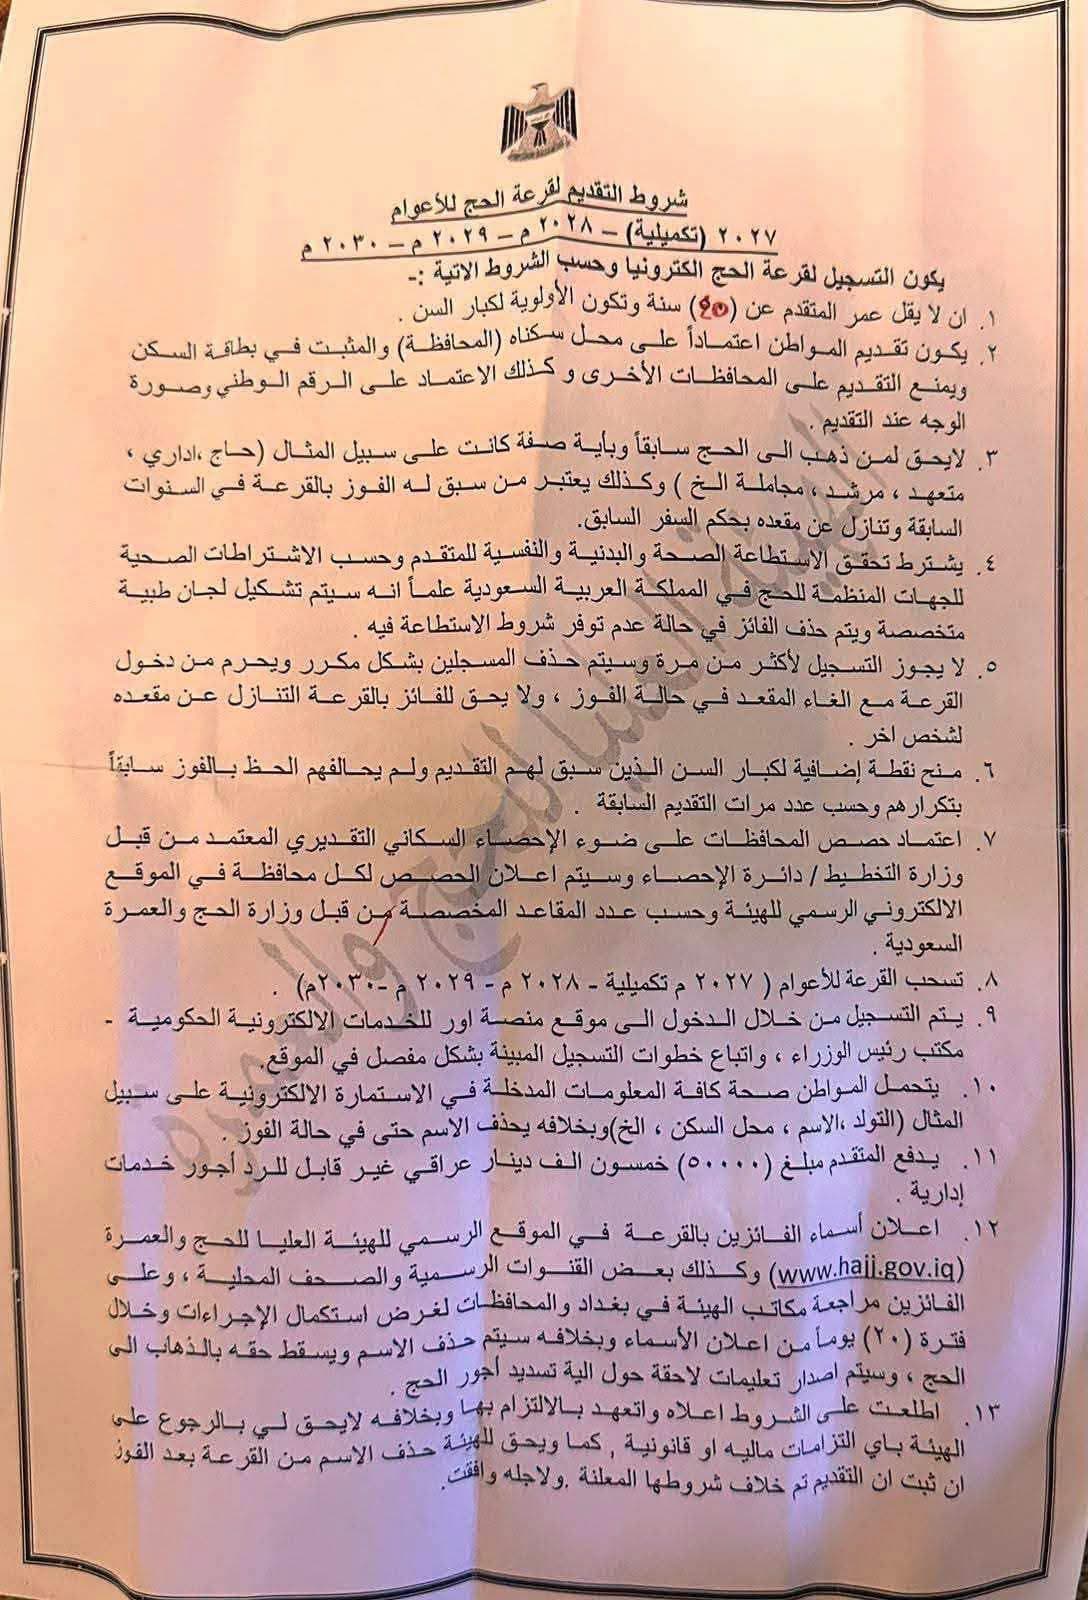 شروط التقديم لقرعة الحج للأعوام
٢٠٢٧ (تكميلية) – ٢٠٢٨ م – ٢٠٢٩ م – ٢٠٣٠ م
يكون التسجيل لقرعة الحج الكترونيا وحسب الشروط الاتية :-
١. ان لا يقل عمر المتقدم عن () سنة وتكون الأولوية لكبار السن .
٢. يكون تقديم المواطن اعتماداً على محل سكناه (المحافظة) والمثبت في بطاقة السكن
ويمنع التقديم على المحافظات الأخرى وكذلك الاعتماد على الرقم الوطني وصورة
الوجه عند التقديم .
٣. لايحق لمن ذهب الى الحج سابقاً وبأية صفة كانت على سبيل المثال (حاج ،اداري ،
متعهد ، مرشد ، مجاملة الخ ) وكذلك يعتبر من سبق له الفوز بالقرعة في السنوات
السابقة وتنازل عن مقعده بحكم السفر السابق.
٤. يشترط تحقق الاستطاعة الصحة والبدنية والنفسية للمتقدم وحسب الاشتراطات الصحية
للجهات المنظمة للحج في المملكة العربية السعودية علماً انه سيتم تشكيل لجان طبية
متخصصة ويتم حذف الفائز في حالة عدم توفر شروط الاستطاعة فيه .
٥. لا يجوز التسجيل لأكثر من مرة وسيتم حذف المسجلين بشكل مكرر ويحرم من دخول
القرعة مع الغاء المقعد في حالة الفوز ، ولا يحق للفائز بالقرعة التنازل عن مقعده
لشخص اخر .
٦. منح نقطة إضافية لكبار السن الذين سبق لهم التقديم ولم يحالفهم الحظ بالفوز سابقاً
بتكرارهم وحسب عدد مرات التقديم السابقة .
٧. اعتماد حصص المحافظات على ضوء الإحصاء السكاني التقديري المعتمد من قبل
وزارة التخطيط / دائرة الإحصاء وسيتم اعلان الحصص لكل محافظة في الموقع
الالكتروني الرسمي للهيئة وحسب عدد المقاعد المخصصة من قبل وزارة الحج والعمرة
السعودية .
٨. تسحب القرعة للأعوام ( ٢٠٢٧ م تكميلية - ٢٠٢٨ م - ٢٠٢٩ م -٢٠٣٠م) .
٩. يتم التسجيل من خلال الدخول الى موقع منصة اور للخدمات الالكترونية الحكومية -
مكتب رئيس الوزراء ، واتباع خطوات التسجيل المبينة بشكل مفصل في الموقع.
١٠. يتحمل المواطن صحة كافة المعلومات المدخلة في الاستمارة الالكترونية على سبيل
المثال (التولد ،الاسم ، محل السكن ، الخ)وبخلافه يحذف الاسم حتى في حالة الفوز .
١١. يدفع المتقدم مبلغ (٥٠٠٠٠) خمسون الف دينار عراقي غير قابل للرد أجور خدمات
إدارية .
١٢. اعلان أسماء الفائزين بالقرعة في الموقع الرسمي للهيئة العليا للحج والعمرة
(www.hajj.gov.iq) وكذلك بعض القنوات الرسمية والصحف المحلية ، وعلى
الفائزين مراجعة مكاتب الهيئة في بغداد والمحافظات لغرض استكمال الإجراءات وخلال
فترة (٢٠) يوماً من اعلان الأسماء وبخلافه سيتم حذف الاسم ويسقط حقه بالذهاب الى
الحج ، وسيتم اصدار تعليمات لاحقة حول الية تسديد أجور الحج .
١٣. اطلعت على الشروط اعلاه واتعهد بالالتزام بها وبخلافه لايحق لي بالرجوع على
الهيئة باي التزامات ماليه او قانونية , كما ويحق للهيئة حذف الاسم من القرعة بعد الفوز
ان ثبت ان التقديم تم خلاف شروطها المعلنة .ولاجله وافقت.
الهيئة العليا للحج والعمرة